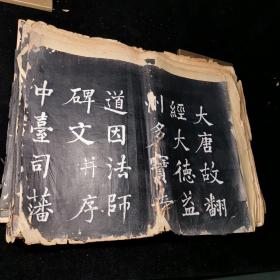 大唐故翻
經大德益
州多寶寺
道因法師
碑文并序
中臺司藩